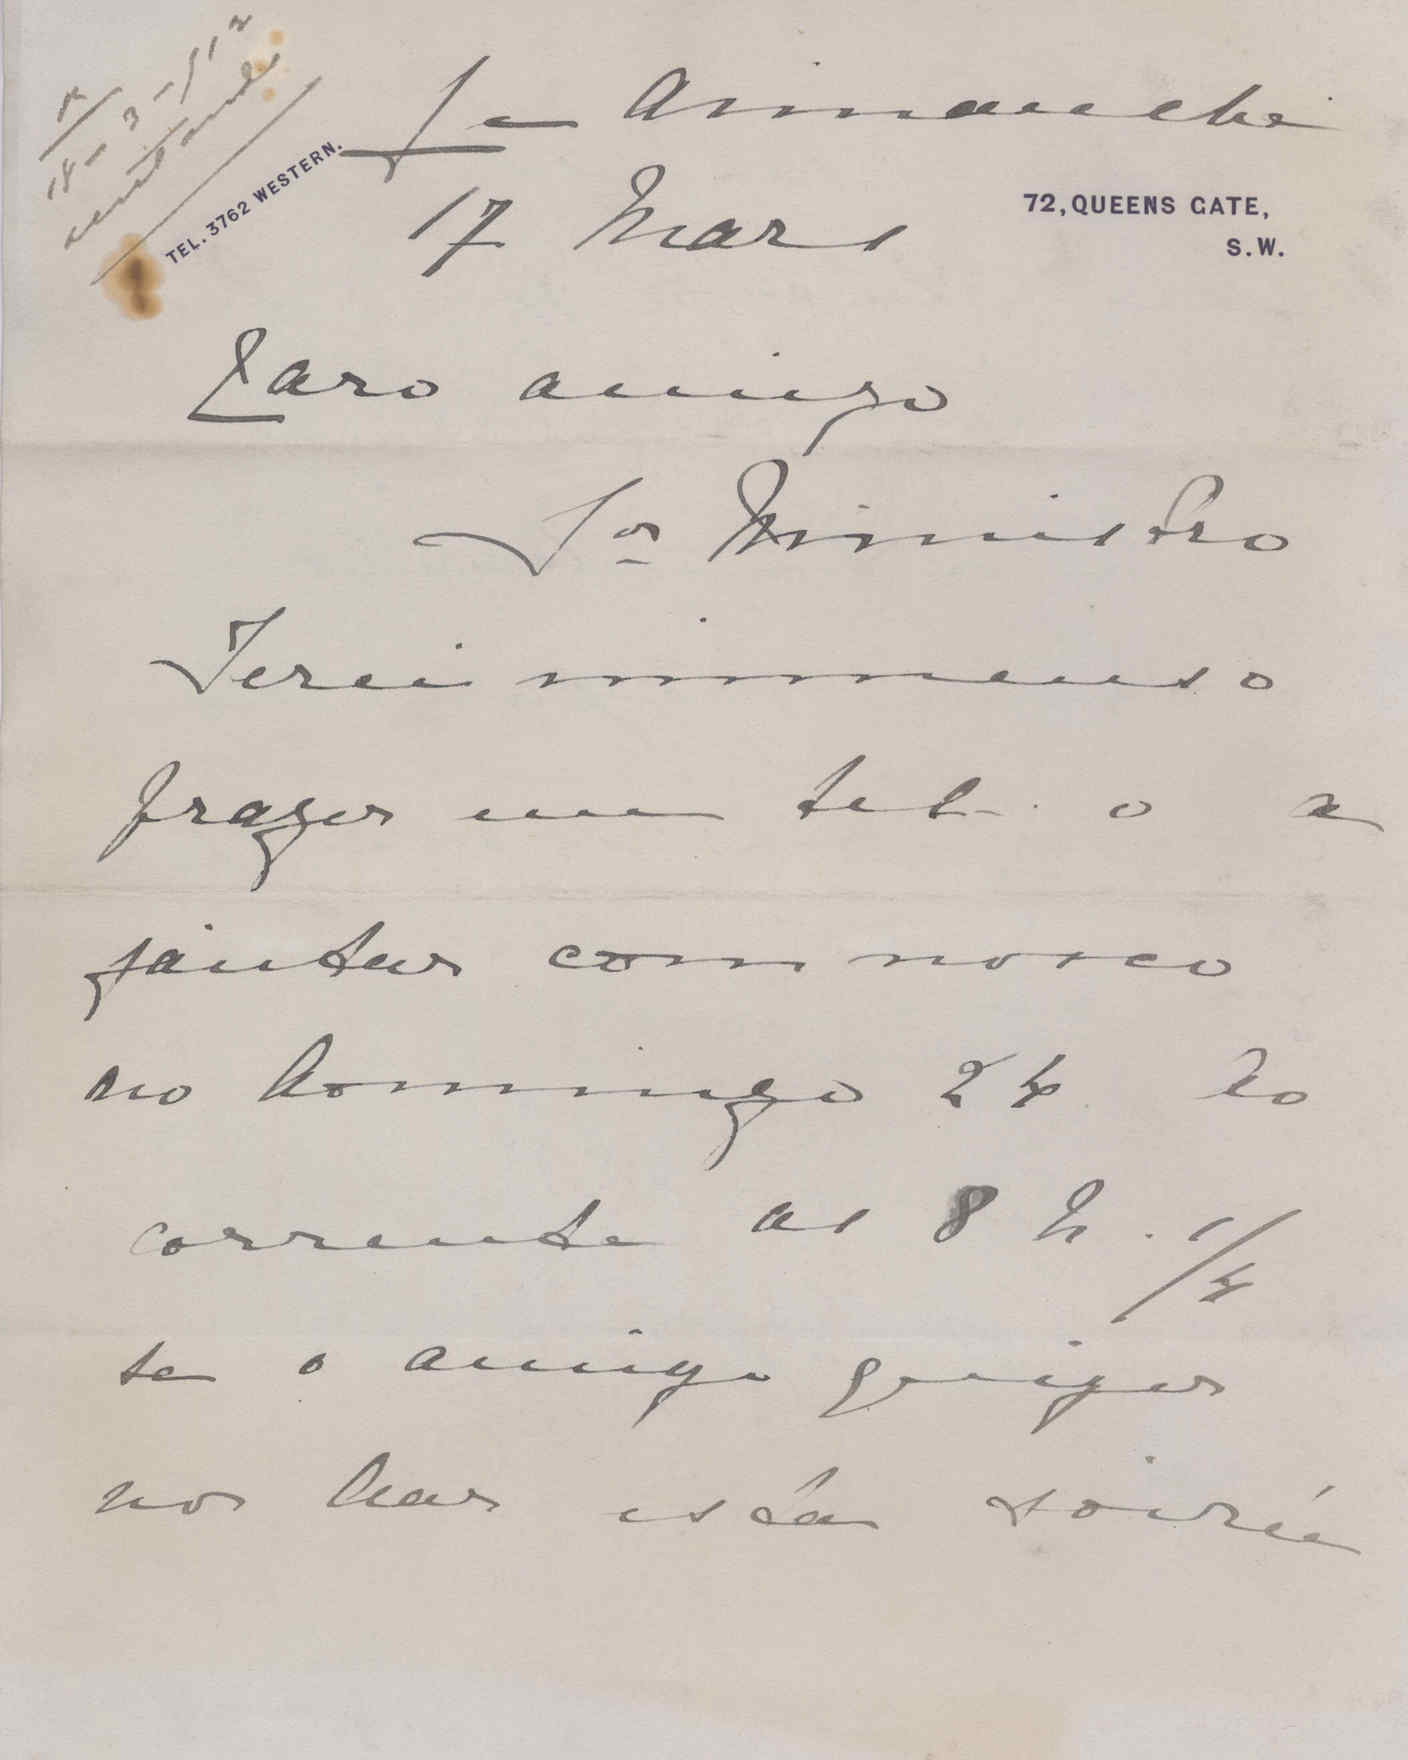 R
18-3-912
TEL. 3762 WESTERN.
Le dimanche
17 Mars
72, QUEENS GATE,
S.W.
Caro amigo
Sor Ministro
Terei immenso
prazer em tel-o a
jantar com nosco
no domingo 24 do
corrente as 8 h. 1/4
se o amigo quizer
nos dar esta soirée